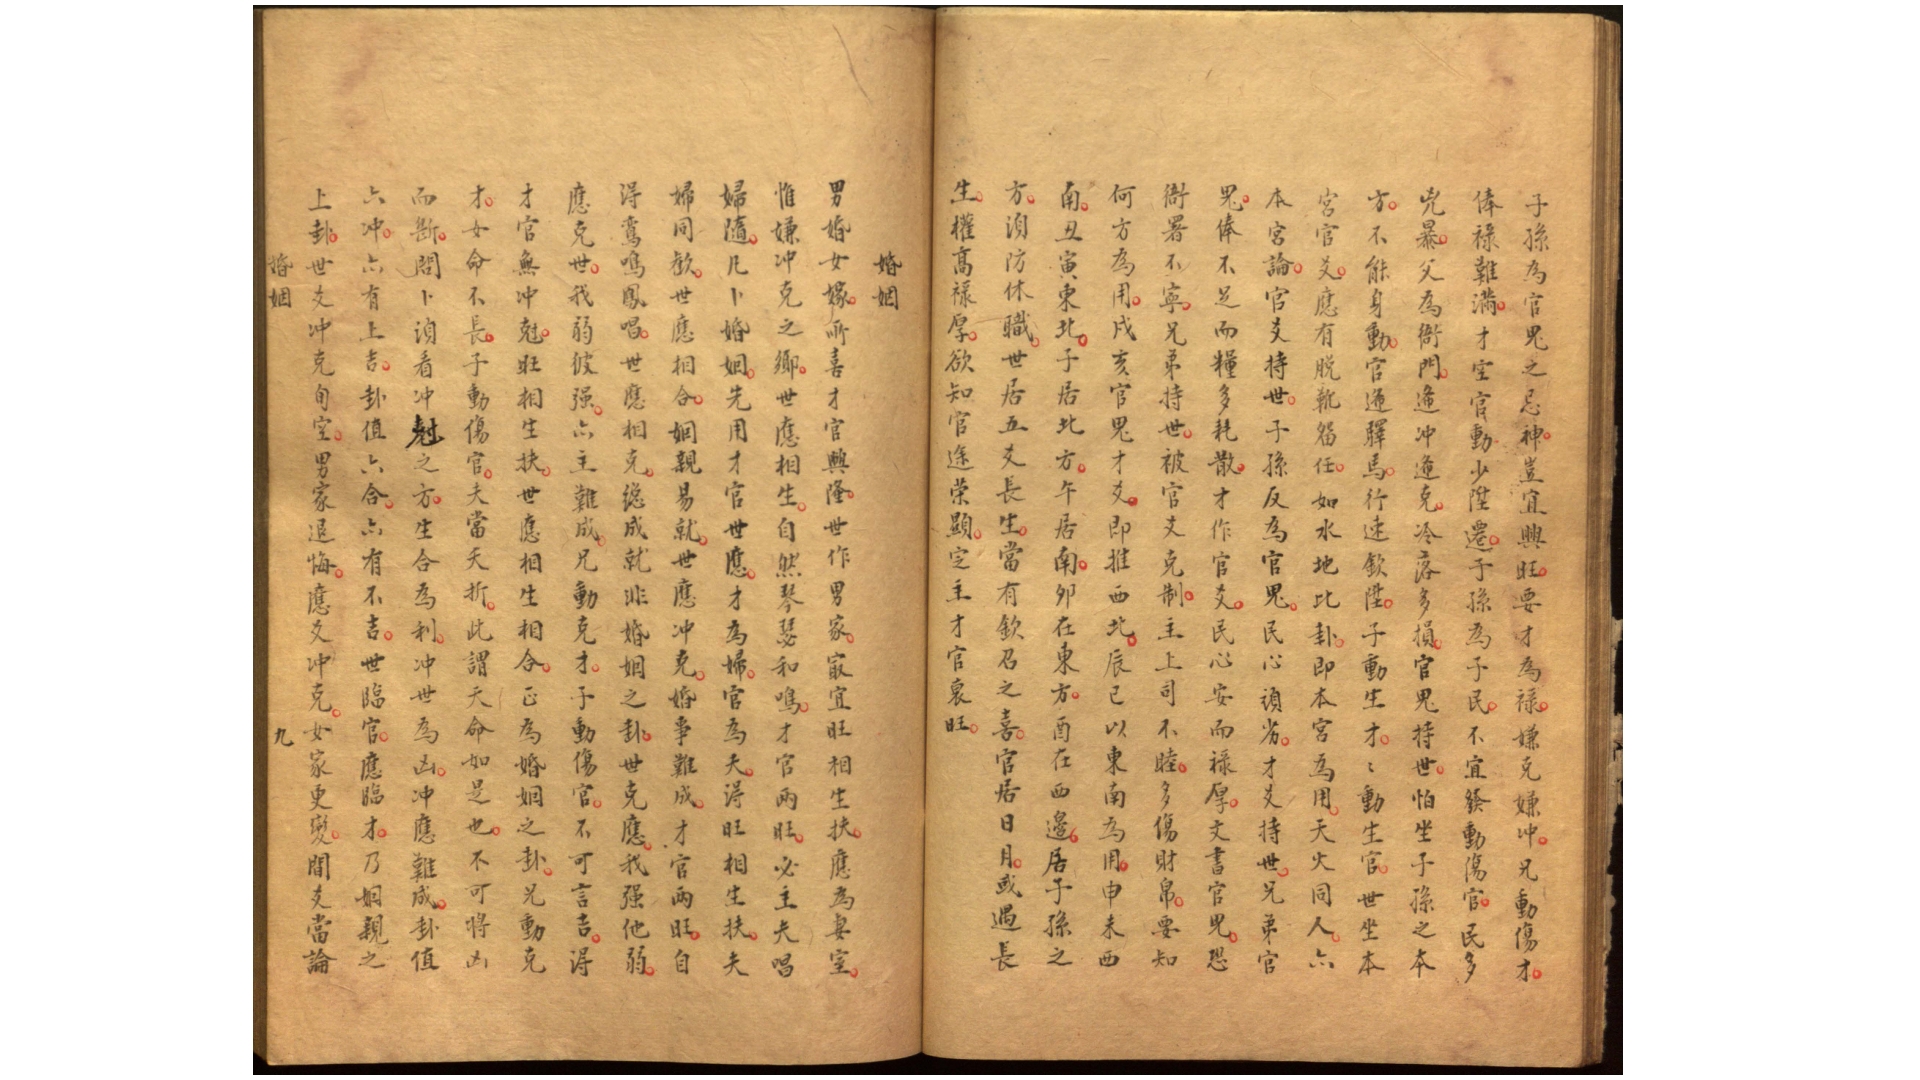 子孫為官鬼之忌神。豈宜興旺。要才為禄。嫌克嫌冲。兄動傷才。
俸禄難滿。才空官動少陞遷。子孫為子民。不宜發動傷官。民多
兇暴。父為衙門。逢冲逢克。冷落多損。官鬼持世。怕坐子孫之本
方。不能身動。官逢驛馬。行速欽陞。子動生才。〻動生官。世坐本
宮官爻。應有脫靴留任。如水地比卦。即本宮為用。天火同人。六
本宮論。官爻持世。子孫反為官鬼。民心頑劣。才爻持世。兄弟官
鬼。俸不足而糧多耗散。才作官爻。民心安而禄厚。文書官鬼。恐
衙署不寧。兄弟持世。被官爻克制。主上司不睦。多傷財帛。要知
何方為用。戌亥官鬼才爻。即推西北。辰巳以東南為用。申未西
南。丑寅東北。子居北方。午居南。卯在東方。酉在西邊。居子孫之
方。須防休職。世居五爻長生。當有欽召之喜。官居日月。或遇長
生。權高禄厚。欲知官途荣顯。定主才官衰旺。
婚姻
男婚女嫁。所喜才官興隆。世作男家。㝡宜旺相生扶。應為妻室。
惟嫌冲克之鄉。世應相生。自然琴瑟和鳴。才官兩旺。必主夫唱
婦隨。凡卜婚姻。先用才官世應。才為婦。官為夫。得旺相生扶。夫
婦同歡。世應相合。姻親易就。世應冲克。婚事難成。才官兩旺。自
得鸞鳴鳳唱。世應相克。總成就非婚姻之卦。世克應。我强他弱。
應克世。我弱彼强。六主難成。兄動克才。子動傷官。不可言吉。得
才官無冲尅。旺相生扶。世應相生相合。正為婚姻之卦。兄動克
才。女命不長。子動傷官。夫當夭折。此謂天命如是也。不可將凶
而斷。問卜須看冲尅之方。生合為利。冲世為凶。冲應難成。卦值
六冲。六有上吉。卦值六合。六有不吉。世臨官。應臨才。乃姻親之
上卦。世爻冲克旬空。男家退悔。應爻冲克。女家更變。間爻當論
婚姻 九